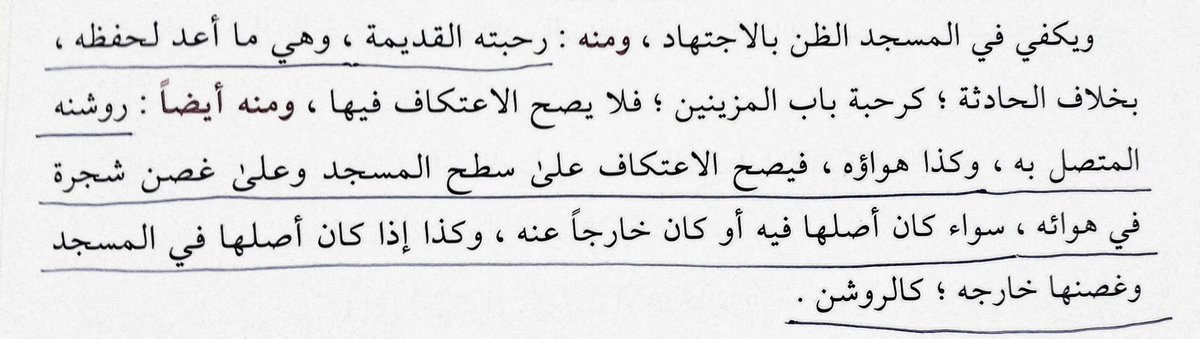 ويكفي في المسجد الظن بالاجتهاد ، ومنه : رحبته القديمة ، وهي ما أعد لحفظه ،
بخلاف الحادثة ؛ كرحبة باب المزينين ؛ فلا يصح الاعتكاف فيها ، ومنه أيضاً : روشنه
المتصل به ، وكذا هواؤه ، فيصح الاعتكاف علىٰ سطح المسجد وعلىٰ غصن شجرة
في هوائه ، سواء كان أصلها فيه أو كان خارجاً عنه ، وكذا إذا كان أصلها في المسجد
وغصنها خارجه ؛ كالروشن .